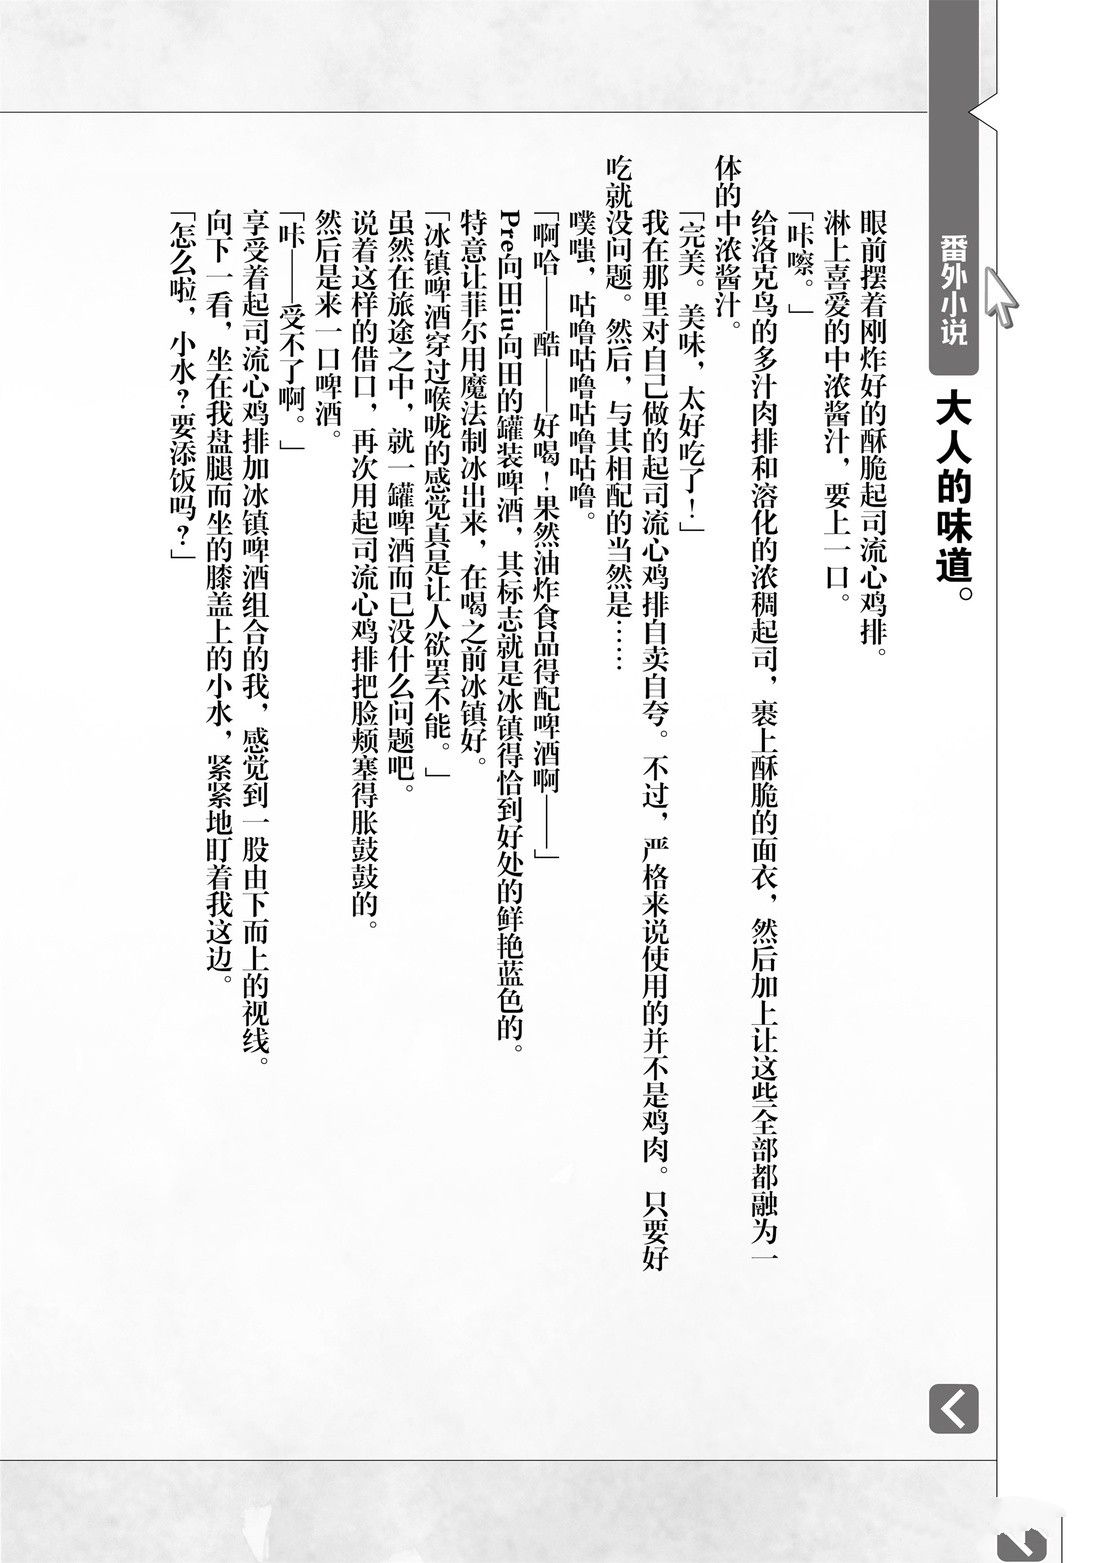 番外小说
大人的味道。
眼前摆着刚炸好的酥脆起司流心鸡排。
淋上喜爱的中浓酱汁，要上一口。
「咔嚓。」
给洛克鸟的多汁肉排和溶化的浓稠起司，裹上酥脆的面衣，然后加上让这些全部都融为一
体的中浓酱汁。
「完美。美味，太好吃了！」
我在那里对自己做的起司流心鸡排自卖自夸。不过，严格来说使用的并不是鸡肉。只要好
吃就没问题。然后，与其相配的当然是……
噗嗤，咕噜咕噜咕噜咕噜。
「啊哈——酷——好喝！果然油炸食品得配啤酒啊——」
Pre向田iu向田的罐装啤酒，其标志就是冰镇得恰到好处的鲜艳蓝色的。
特意让菲尔用魔法制冰出来，在喝之前冰镇好。
「冰镇啤酒穿过喉咙的感觉真是让人欲罢不能。」
虽然在旅途之中，就一罐啤酒而已没什么问题吧。
说着这样的借口，再次用起司流心鸡排把脸颊塞得胀鼓鼓的。
然后是来一口啤酒。
「咔——受不了啊。」
享受着起司流心鸡排加冰镇啤酒组合的我，感觉到一股由下而上的视线。
向下一看，坐在我盘腿而坐的膝盖上的小水，紧紧地盯着我这边。
「怎么啦，小水？要添饭吗？」